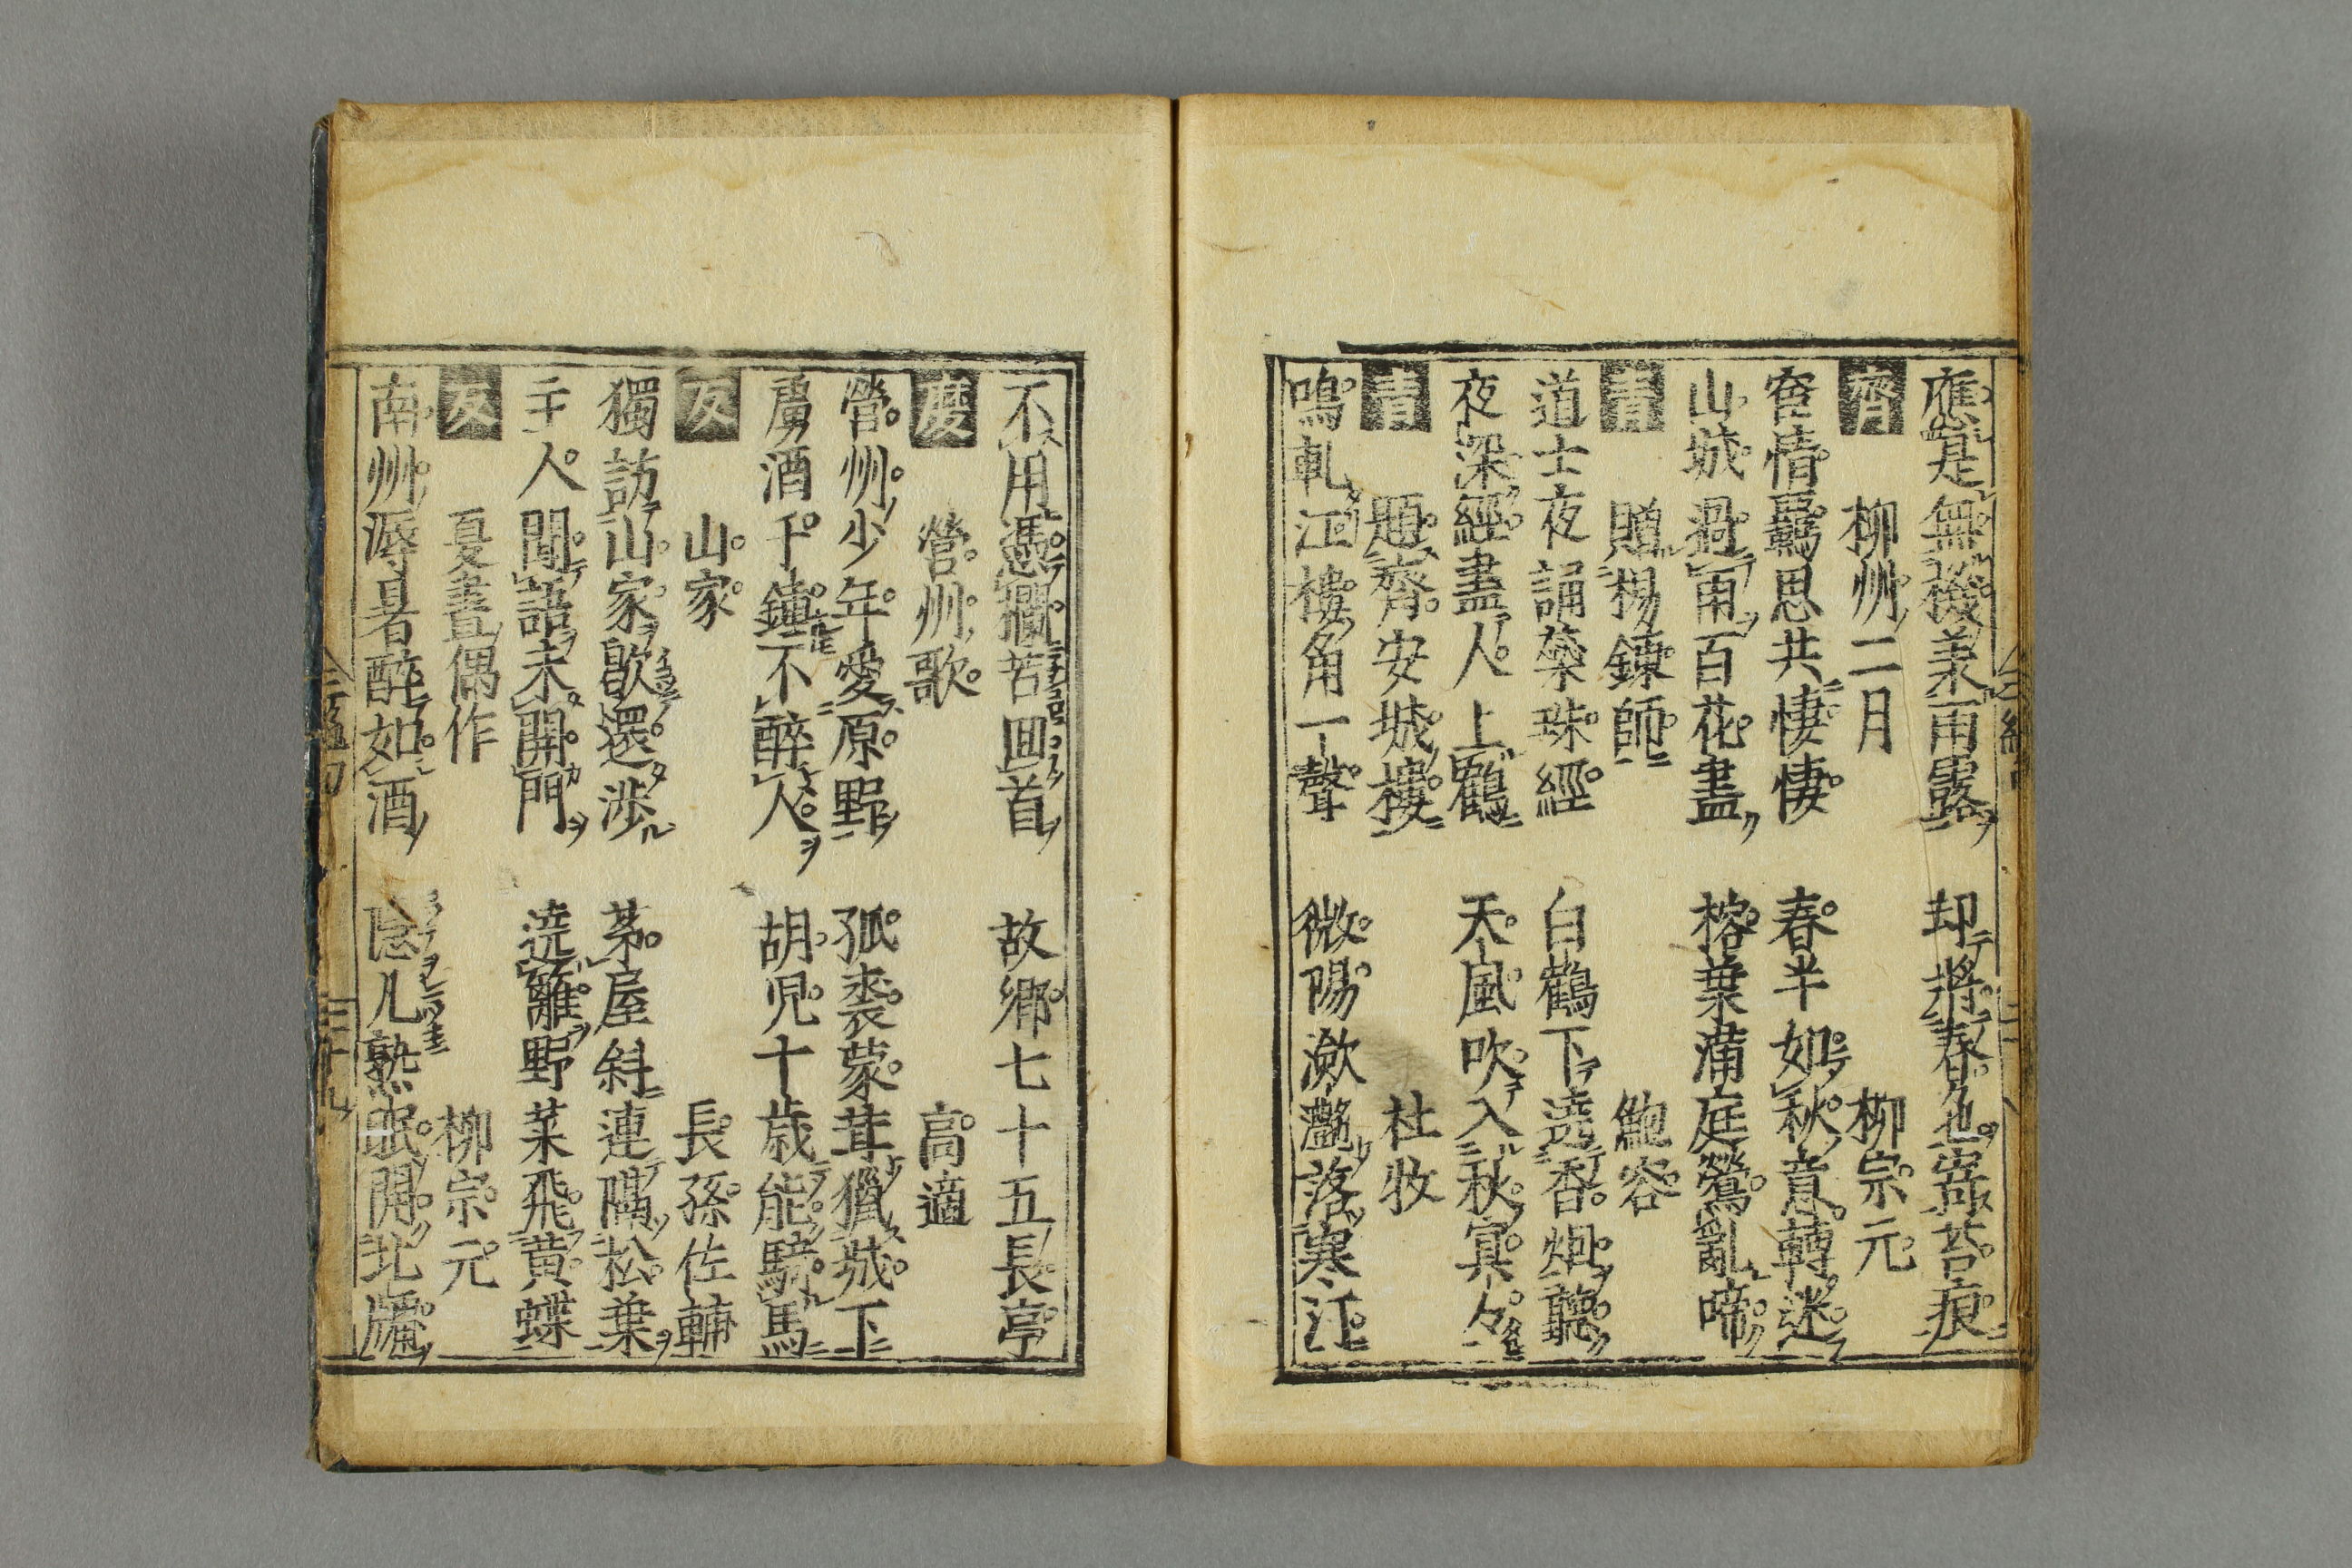 應是無機美雨露 却將春色寄苔痕
齊 柳州二月 柳宗元
宦情羈思共悽悽 春半如秋意轉迷
山城過雨百花盡 榕葉滿庭鶯亂啼
青 贈楊鍊師 鮑容
道士夜誦蘂珠經 白鶴下遶香烟聽
夜深經盡人上鶴 天風吹入秋冥々
青 題齊安城樓 杜牧
鳴軋江樓角一聲 微陽瀲灔落寒汀
不用憑欄苦回首 故鄉七十五長亭
虞 營州歌 高適
營州少年愛原野 狐裘蒙茸獵城下
虜酒千鍾不醉人 胡児十歳能騎馬
灰 山家 長孫佐輔
獨訪山家歇還渉 茅屋斜連隔松葉
主人聞語未開門 遶籬野菜飛黄蝶
灰 夏晝偶作 柳宗元
南州溽暑醉如酒 隠几熟眠開北牖
三十九